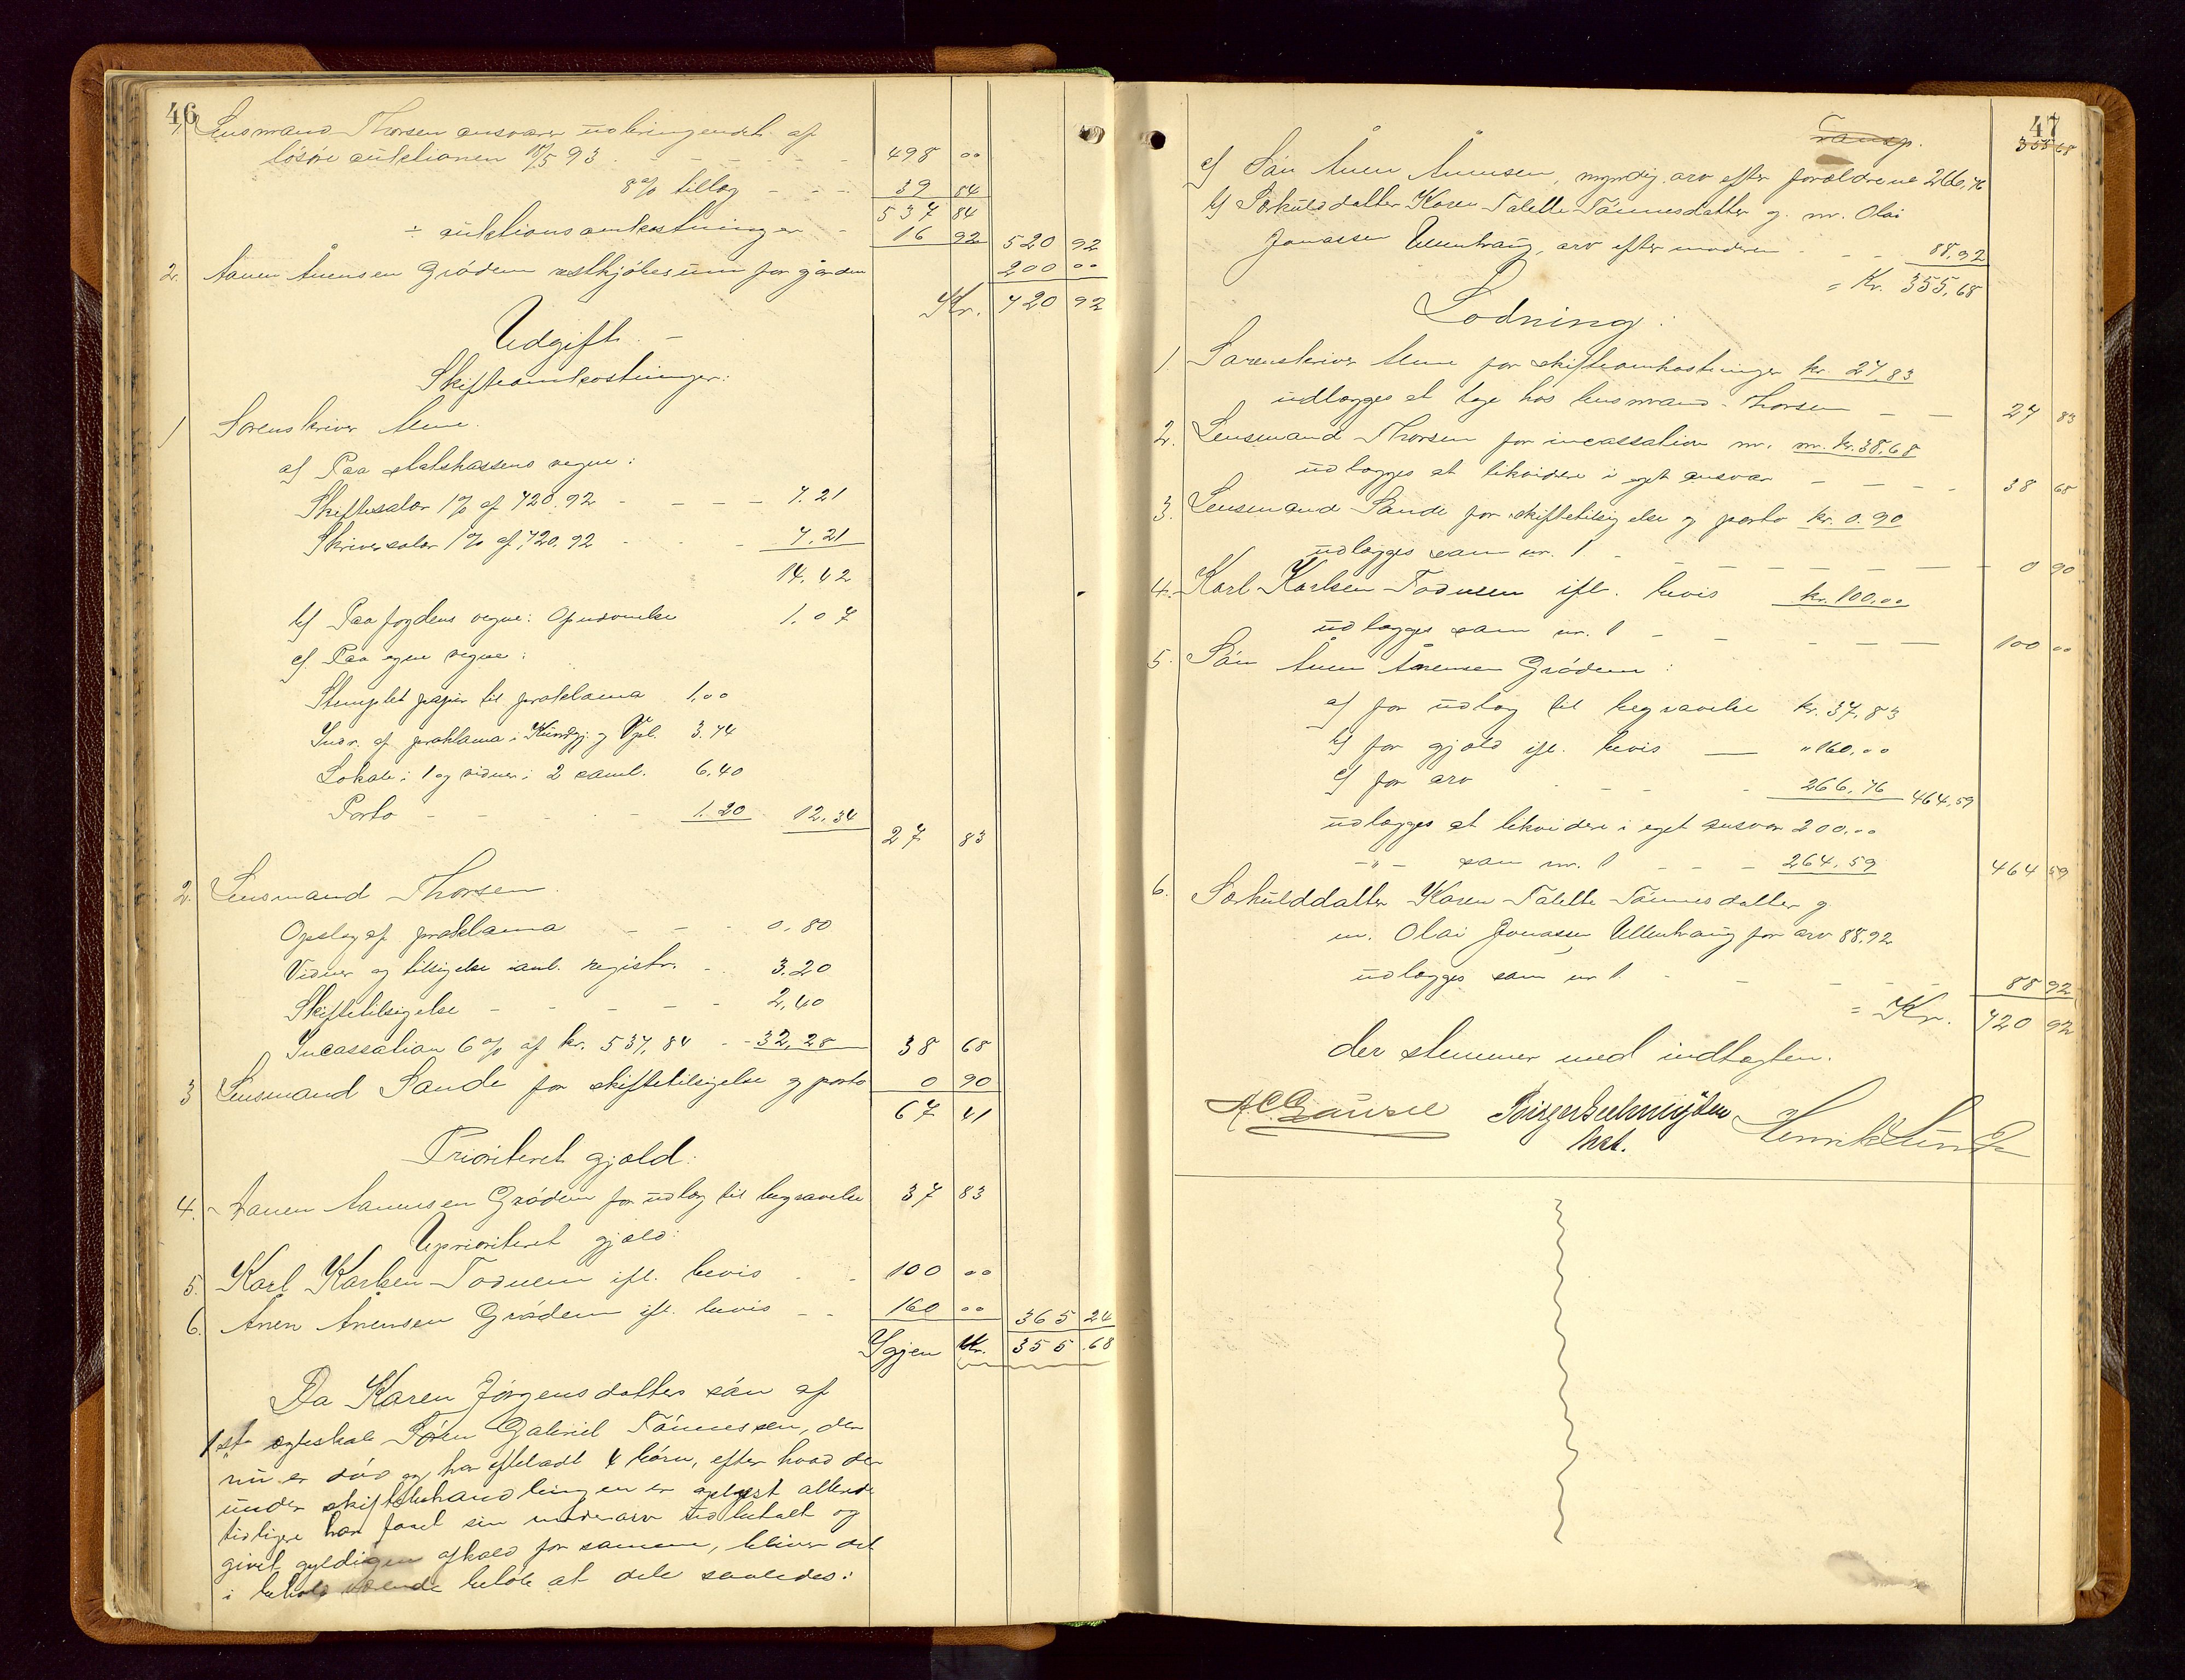 46
1 Lensmand Thorsen ansvarer udbringendet af
løsøre auktionen 18/5 93 - - - - 498 00
8% tillæg - - - 39 84
537 84
÷ auktionsomkostninger - 16 92 520 92
2. Aanen Ånensen Grødem restkjøbesum for gården 200 00
Kr. 720 92
Udgift. -
Skifteomkostninger:
1 Sorenskriver
a) Paa statskassens vegne:
Skiftesalær 1% af 720.92 - - - - 7.21
Skriversalær 1% af 720.92 - - - 7.21
14.42
b) Paa fogdens vegne: 1.07
c) Paa egne vegne:
Stemplet papir til proklama 1.00
Indr. af proklama i Kundgj. og Vbl. 3.74
Lokale i 1 og vidner i 2 saml. 6.40
Porto - - - - 1.20 12.34
27 83
2. Lensmand Thorsen.
Opslag af proklama - - - 0.80
Vidner og tilsigelse anl. registr. - - 3.20
Skiftetilsigelse - - - - 2.40
Incassation 6% af kr. 537,84 - - 32.28 38 68
3 Lensmand Sande for skiftetilsigelse og porto 0 90
67 41
Prioriteret gjæld:
4. Aanen Aanensen Grødem for udlæg til begravelse 37 83
Uprioriteret gjæld:
5. Karl Karlsen Todnem ifl. bevis - - 100 00
6. Ånen Ånensen Grødem ifl. bevis - - 160 00 365 24
Igjen Kr. 355.68
Da Karen Jørgensdatters søn af
1ste ægteskab Søren Gabriel Tønnessen, der
nu er død og har efterladt 4 børn, efter hvad der
under skiftebehandlingen er oplyst allerede
tidligere har faaet sin mødrearv udbetalt og
givet gyldigen afkald for samme, bliver det
i behold værende beløb at dele saaledes:
47
Transp. 355 68
a) Søn Ånen Ånensen, myndig, arv efter forældrene 266,76
b) Særkuldsdatter Karen Talette Tønnesdatter g. m. Olai
Jonassen Ullenhaug, arv efter moderen - - - 88.92
= Kr. 355,68
Lodning:
1. Sorenskriver for skifteomkostninger kr. 27,83
udlægges at tage hos lensmand Thorsen - - 27 83
2. Lensmand Thorsen for incassation m. m. kr. 38,68
udlægges at likvidere i eget ansvar - - - - 38 68
3. Lensmand Sande for skiftetilsigelse og porto kr. 0.90
udlægges som nr. 1 - - - - - - 0 90
4. Karl Karlsen Todnem ifl. bevis kr. 100.00
udlægges som nr. 1 - - - - - 100 00
5. Søn Ånen Ånensen Grødem:
a) for udlæg til begravelse kr. 37,83
b) for gjæld ifl. bevis — " 160,00
c) for arv - - - 266,76 464,59
udlægges at likvidere i eget ansvar 200.00
-"- som nr. 1 - - - 264.59 464 59
6. Særkulddatter Karen Talette Tønnesdatter g.
m. Olai Jonassen Ullenhaug for arv 88.92
udlægges som nr 1. - - - - 88 92
= Kr. 720 92
der stemmer med indtægten.